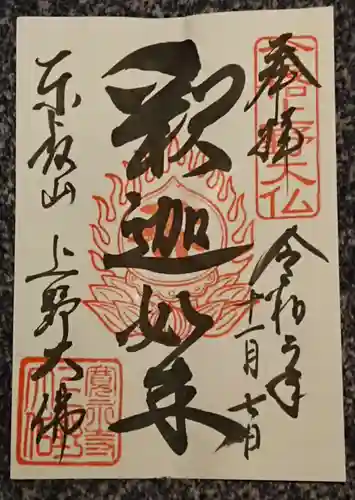 奉拝
上野大仏
令和二年
十一月七日
釈迦如来
東叡山 上野大佛
寛永寺